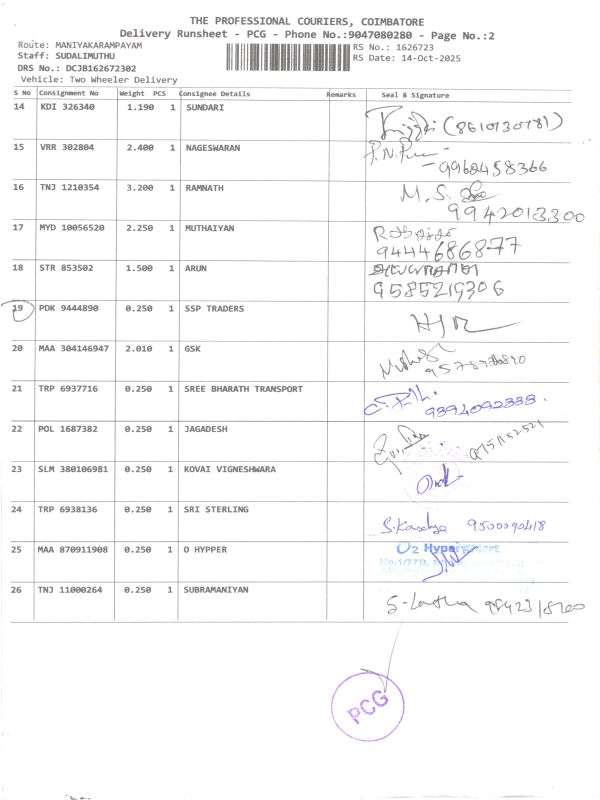 THE PROFESSIONAL COURIERS, COIMBATORE
Delivery Runsheet - PCG - Phone No.:9047080280 - Page No.:2
Route: MANIYAKARAMPAYAM
Staff: SUDALIMUTHU
DRS No.: DCJB162672302
Vehicle: Two Wheeler Delivery
RS No.: 1626723
RS Date: 14-Oct-2025
S No Consignment No Weight PCS Consignee Details Remarks Seal & Signature
14 KDI 326340 1.190 1 SUNDARI (8610130781)
15 VRR 302804 2.400 1 NAGESWARAN
9962458366
16 TNJ 1210354 3.200 1 RAMNATH M.S.
9942013300
17 MYD 10056520 2.250 1 MUTHAIYAN
9444686877
18 STR 853502 1.500 1 ARUN
9585219306
19 PDK 9444890 0.250 1 SSP TRADERS
20 MAA 304146947 2.010 1 GSK
21 TRP 6937716 0.250 1 SREE BHARATH TRANSPORT 9394092333
22 POL 1687382 0.250 1 JAGADESH 9751152521
23 SLM 380106981 0.250 1 KOVAI VIGNESHWARA
24 TRP 6938136 0.250 1 SRI STERLING 9500090418
25 MAA 870911908 0.250 1 O HYPPER O2 Hyper Mart
No.1/77B,
26 TNJ 11000264 0.250 1 SUBRAMANIYAN
PCG